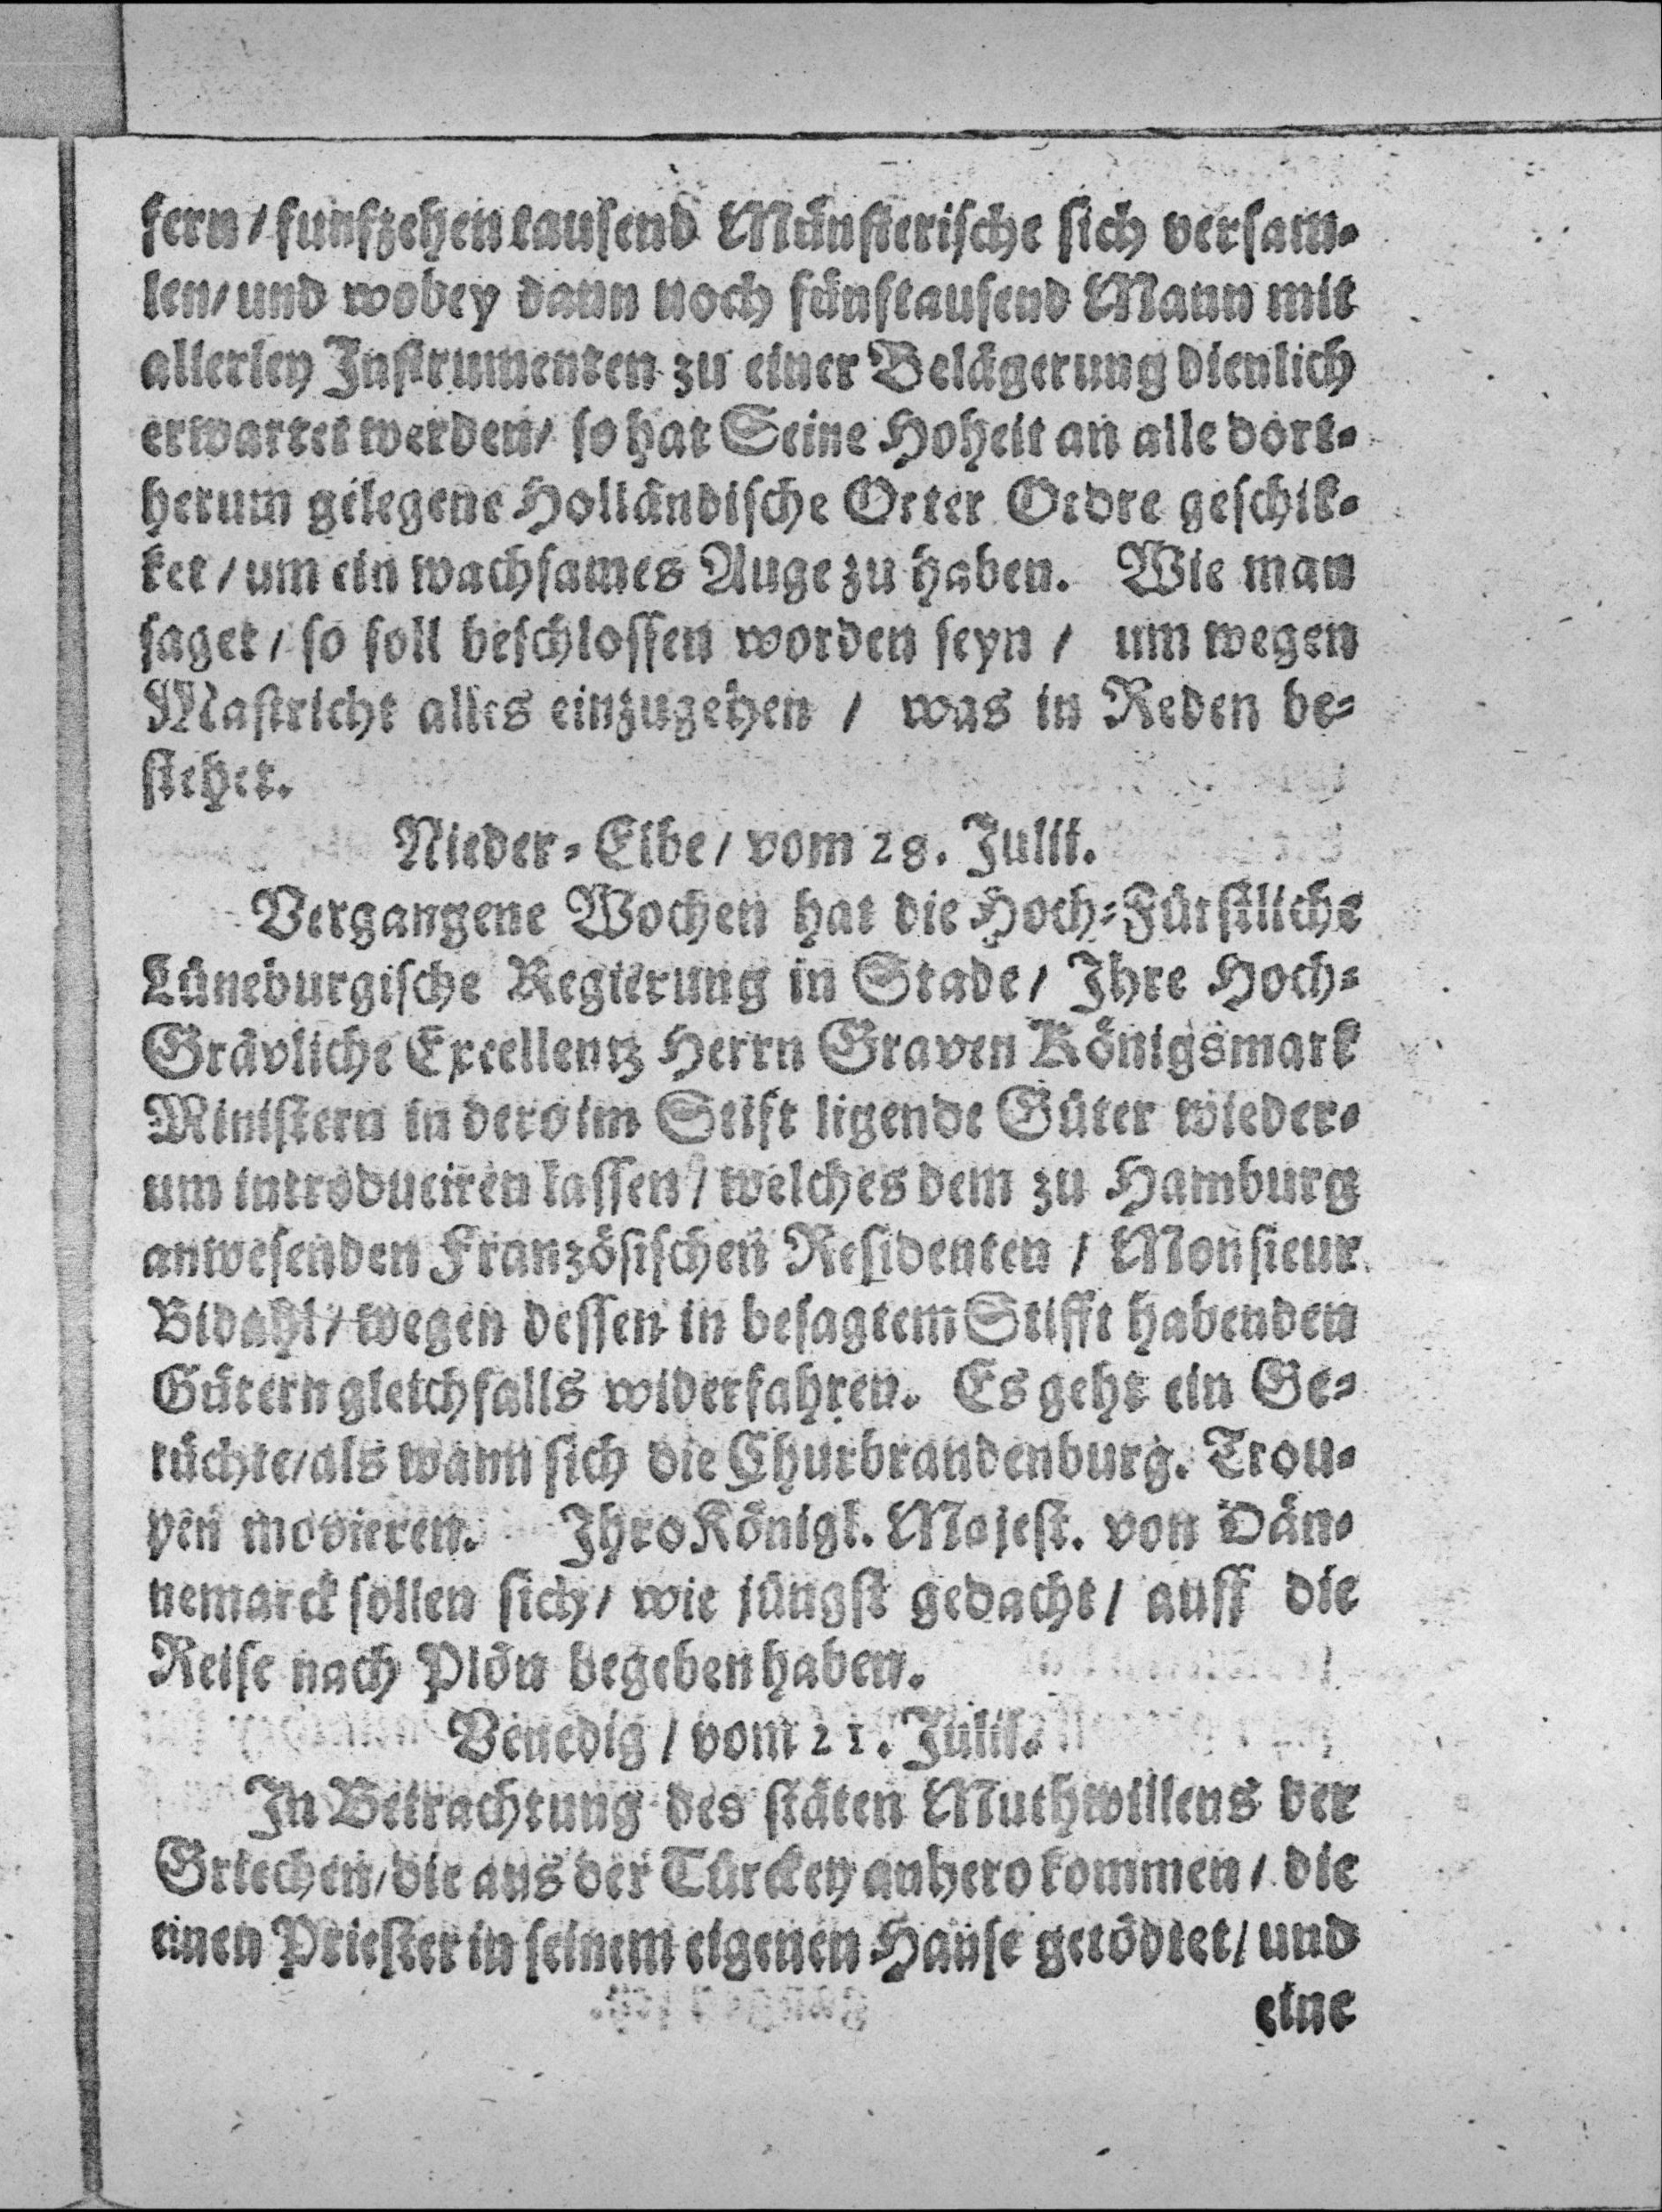 fern / funfzehen tausend Münsterische sich versam-
len / und wobey dann noch fünftausend Mann mit
allerley Instrumenten zu einer Belägerung dienlich
erwartet werden / so hat Seine Hoheit an alle dort-
herum gelegene Holländische Orter Ordre geschik-
ket / um ein wachsames Auge zu haben. Wie man
saget / so soll beschlossen worden seyn / um wegen
Mastricht alles einzugehen / was in Reden be-
stehet.
Nieder-Elbe / vom 28. Julii.
Vergangene Wochen hat die Hoch-Fürstliche
Lüneburgische Regierung in Stade / Ihre Hoch-
Grävliche Excellentz Herrn Graven Königsmark
Ministern in dero im Stift ligende Güter wieder-
um introduciren lassen / welches dem zu Hamburg
anwesenden Französischen Residenten / Monsieur
Bidahl / wegen dessen in besagtem Stifft habenden
Gütern gleichfalls widerfahren. Es geht ein Ge-
rüchte / als wann sich die Churbrandenburg. Trou-
pen movieren. Ihro Königl. Majest. von Dän-
nemarck sollen sich / wie jüngst gedacht / auff die
Reise nach Plön begeben haben.
Venedig / vom 21. Julii.
In Betrachtung des stäten Muthwillens der
Griechen / die aus der Türckey anhero kommen / die
einen Priester in seinem eigenen Hause getödtet / und
eine